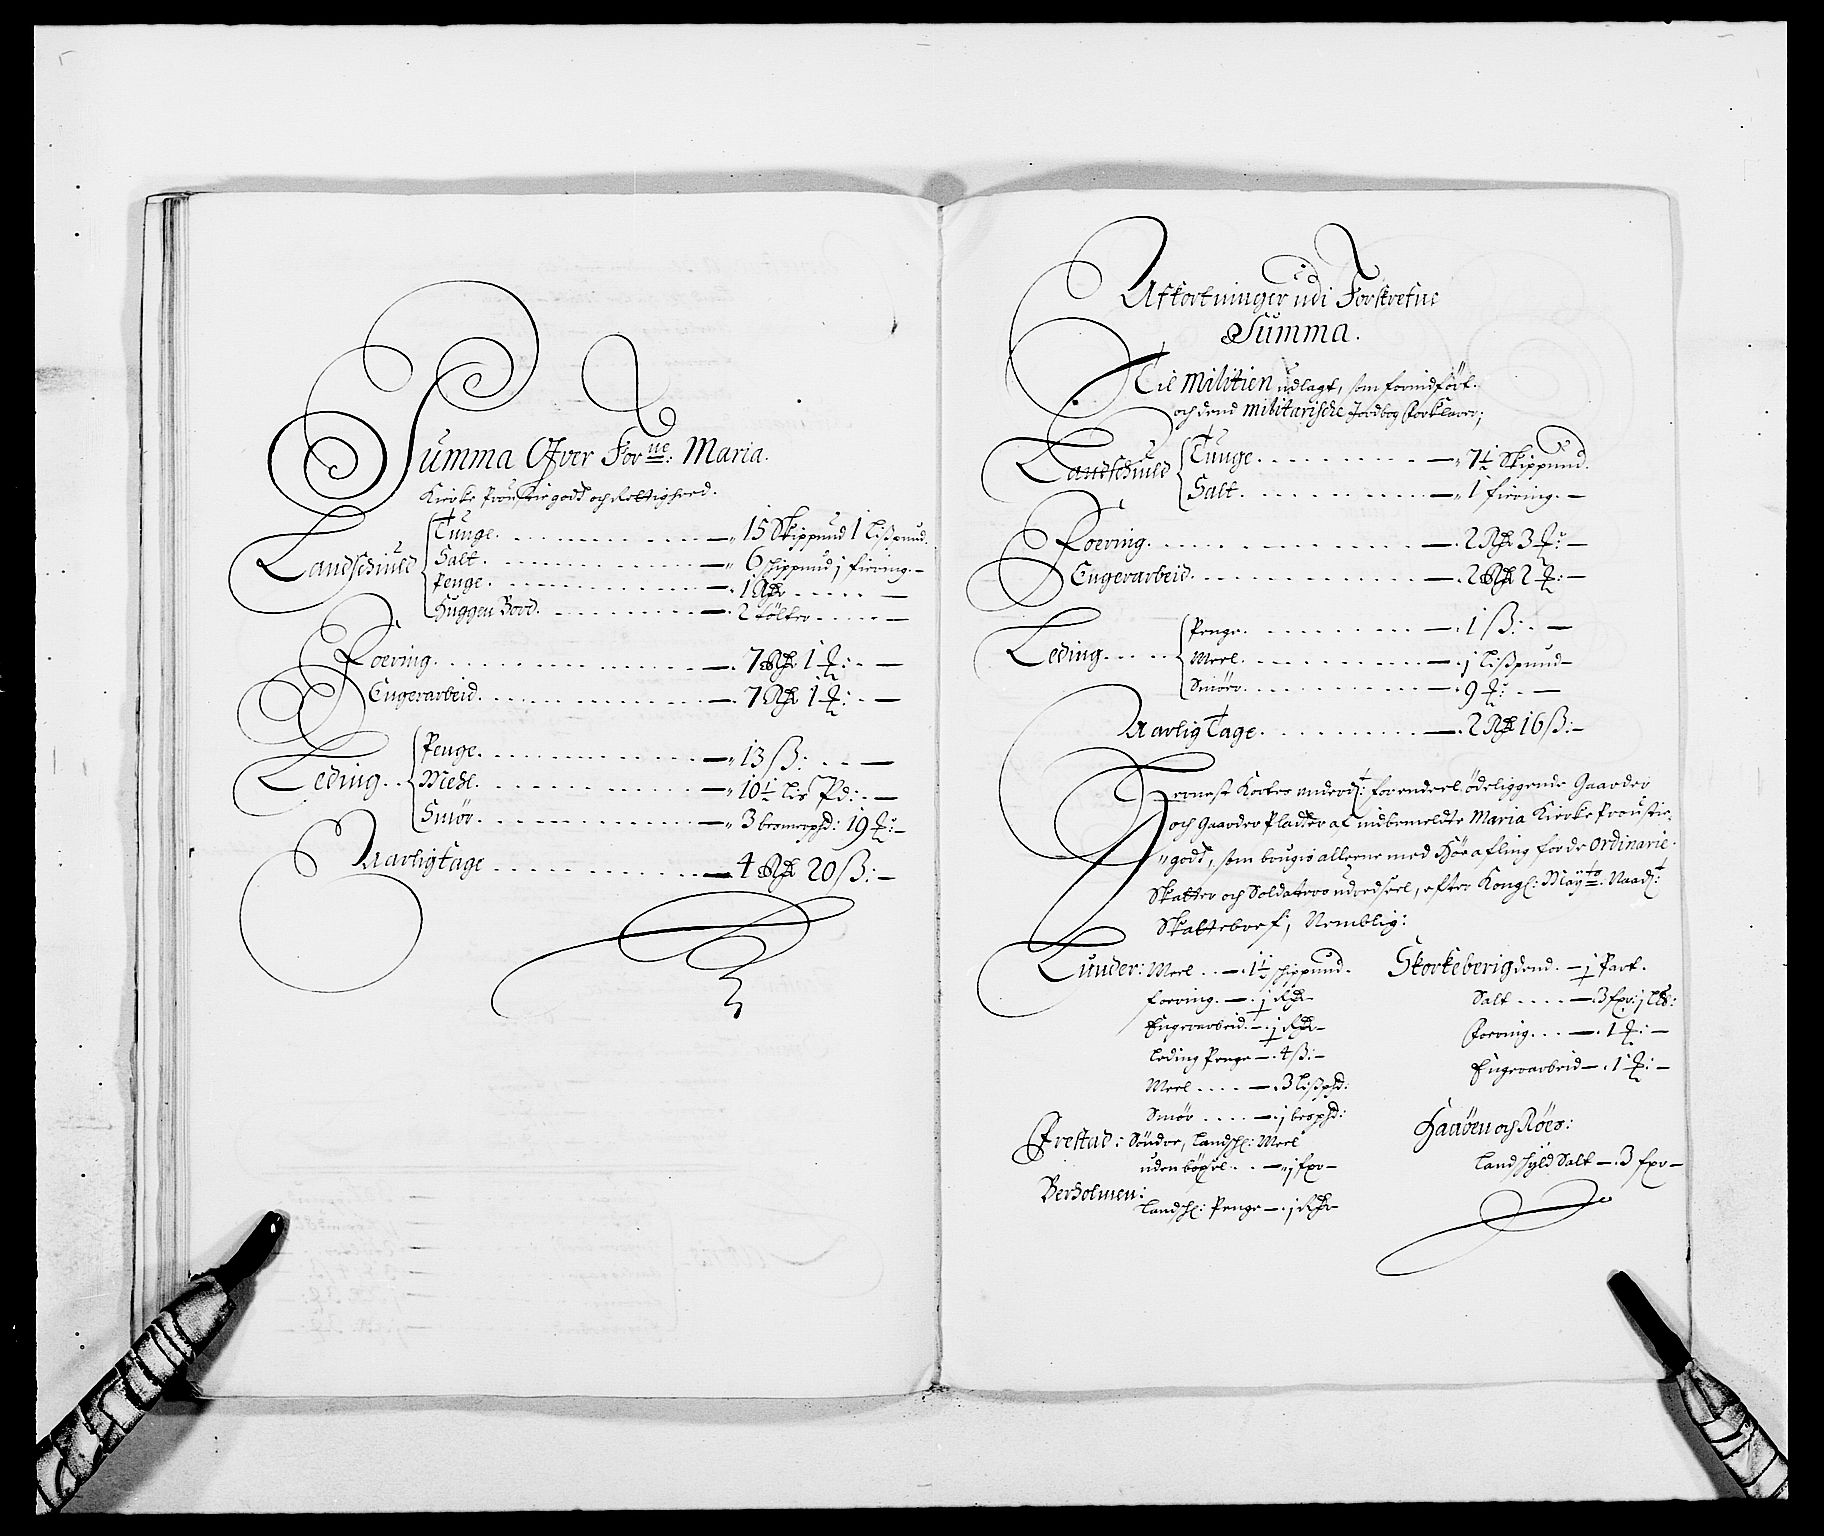 Summa Ofver Forne: Maria.
Kircke Proustie godt och Rettighed.
Landschiuld
Tunge. — 15 Skippund 1 Lißpund.
Salt. — 6 schippund j fiering. —
Penge. — 1 Rdr —
Huggen Bord. — 2 tölter —
Foering. — 7 Rdr 1 ꝶ: —
Engerarbeid. — 7 Rdr 1 ꝶ: —
Leding.
Penge. — 13 ß: —
Meel. — 10½ Lis Pd: —
Smör. — 3 bremerpd: 19 ꝶ: —
Aarlig Tage — 4 Rdr 20 ß: —
Afkortninger udi Forskrefne
Summa.
Til Militien udlagt, som forindfört.
och dend militarische Jordbog Forklarer;
Landschiuld
Tunge. — 7½ Skippund.
Salt. — 1 fiering. —
Foering. — 2 Rdr 3 ꝶ: —
Engerarbeid. — 2 Rdr 2 ꝶ: —
Leding.
Penge. — 1 ß: —
Meel. — j Lißpund —
Smör. — 9 ꝶ: —
Aarlig Tage. — 2 Rdr 16 ß: —
Hernest Kortes underdt: for endeel ödeliggende Gaarder
och Gaarder Pladtzer af indbemeldte Maria Kircke Proustie-
godt, som brugis allerne med Höe afling for de ordinarie
Skatter och Soldaters udredsel, efter Kongl: Mayts: Naadt:
Skattebref, Nemblig:
Lunder: Meel — 1½ schippund.
foering. — ½ Rdr —
Engerarbeid. — ½ Rdr —
Leding Penge — 4 ß: —
Meel — 3 Lißpd:
Smör — j berpd:
Frestad: Söndre, Landschl: Meel
uden böxel — j fxr —
Berholmen:
Landschl: Penge — j Rdr —
Skorkeberig dend. — ½ Part.
Salt — 3 fxr: j Lb:
Foering. — 1 ꝶ: —
Engerarbeid — 1 ꝶ: —
Haaben och Röer:
Landschyld Salt — 3 fxr —